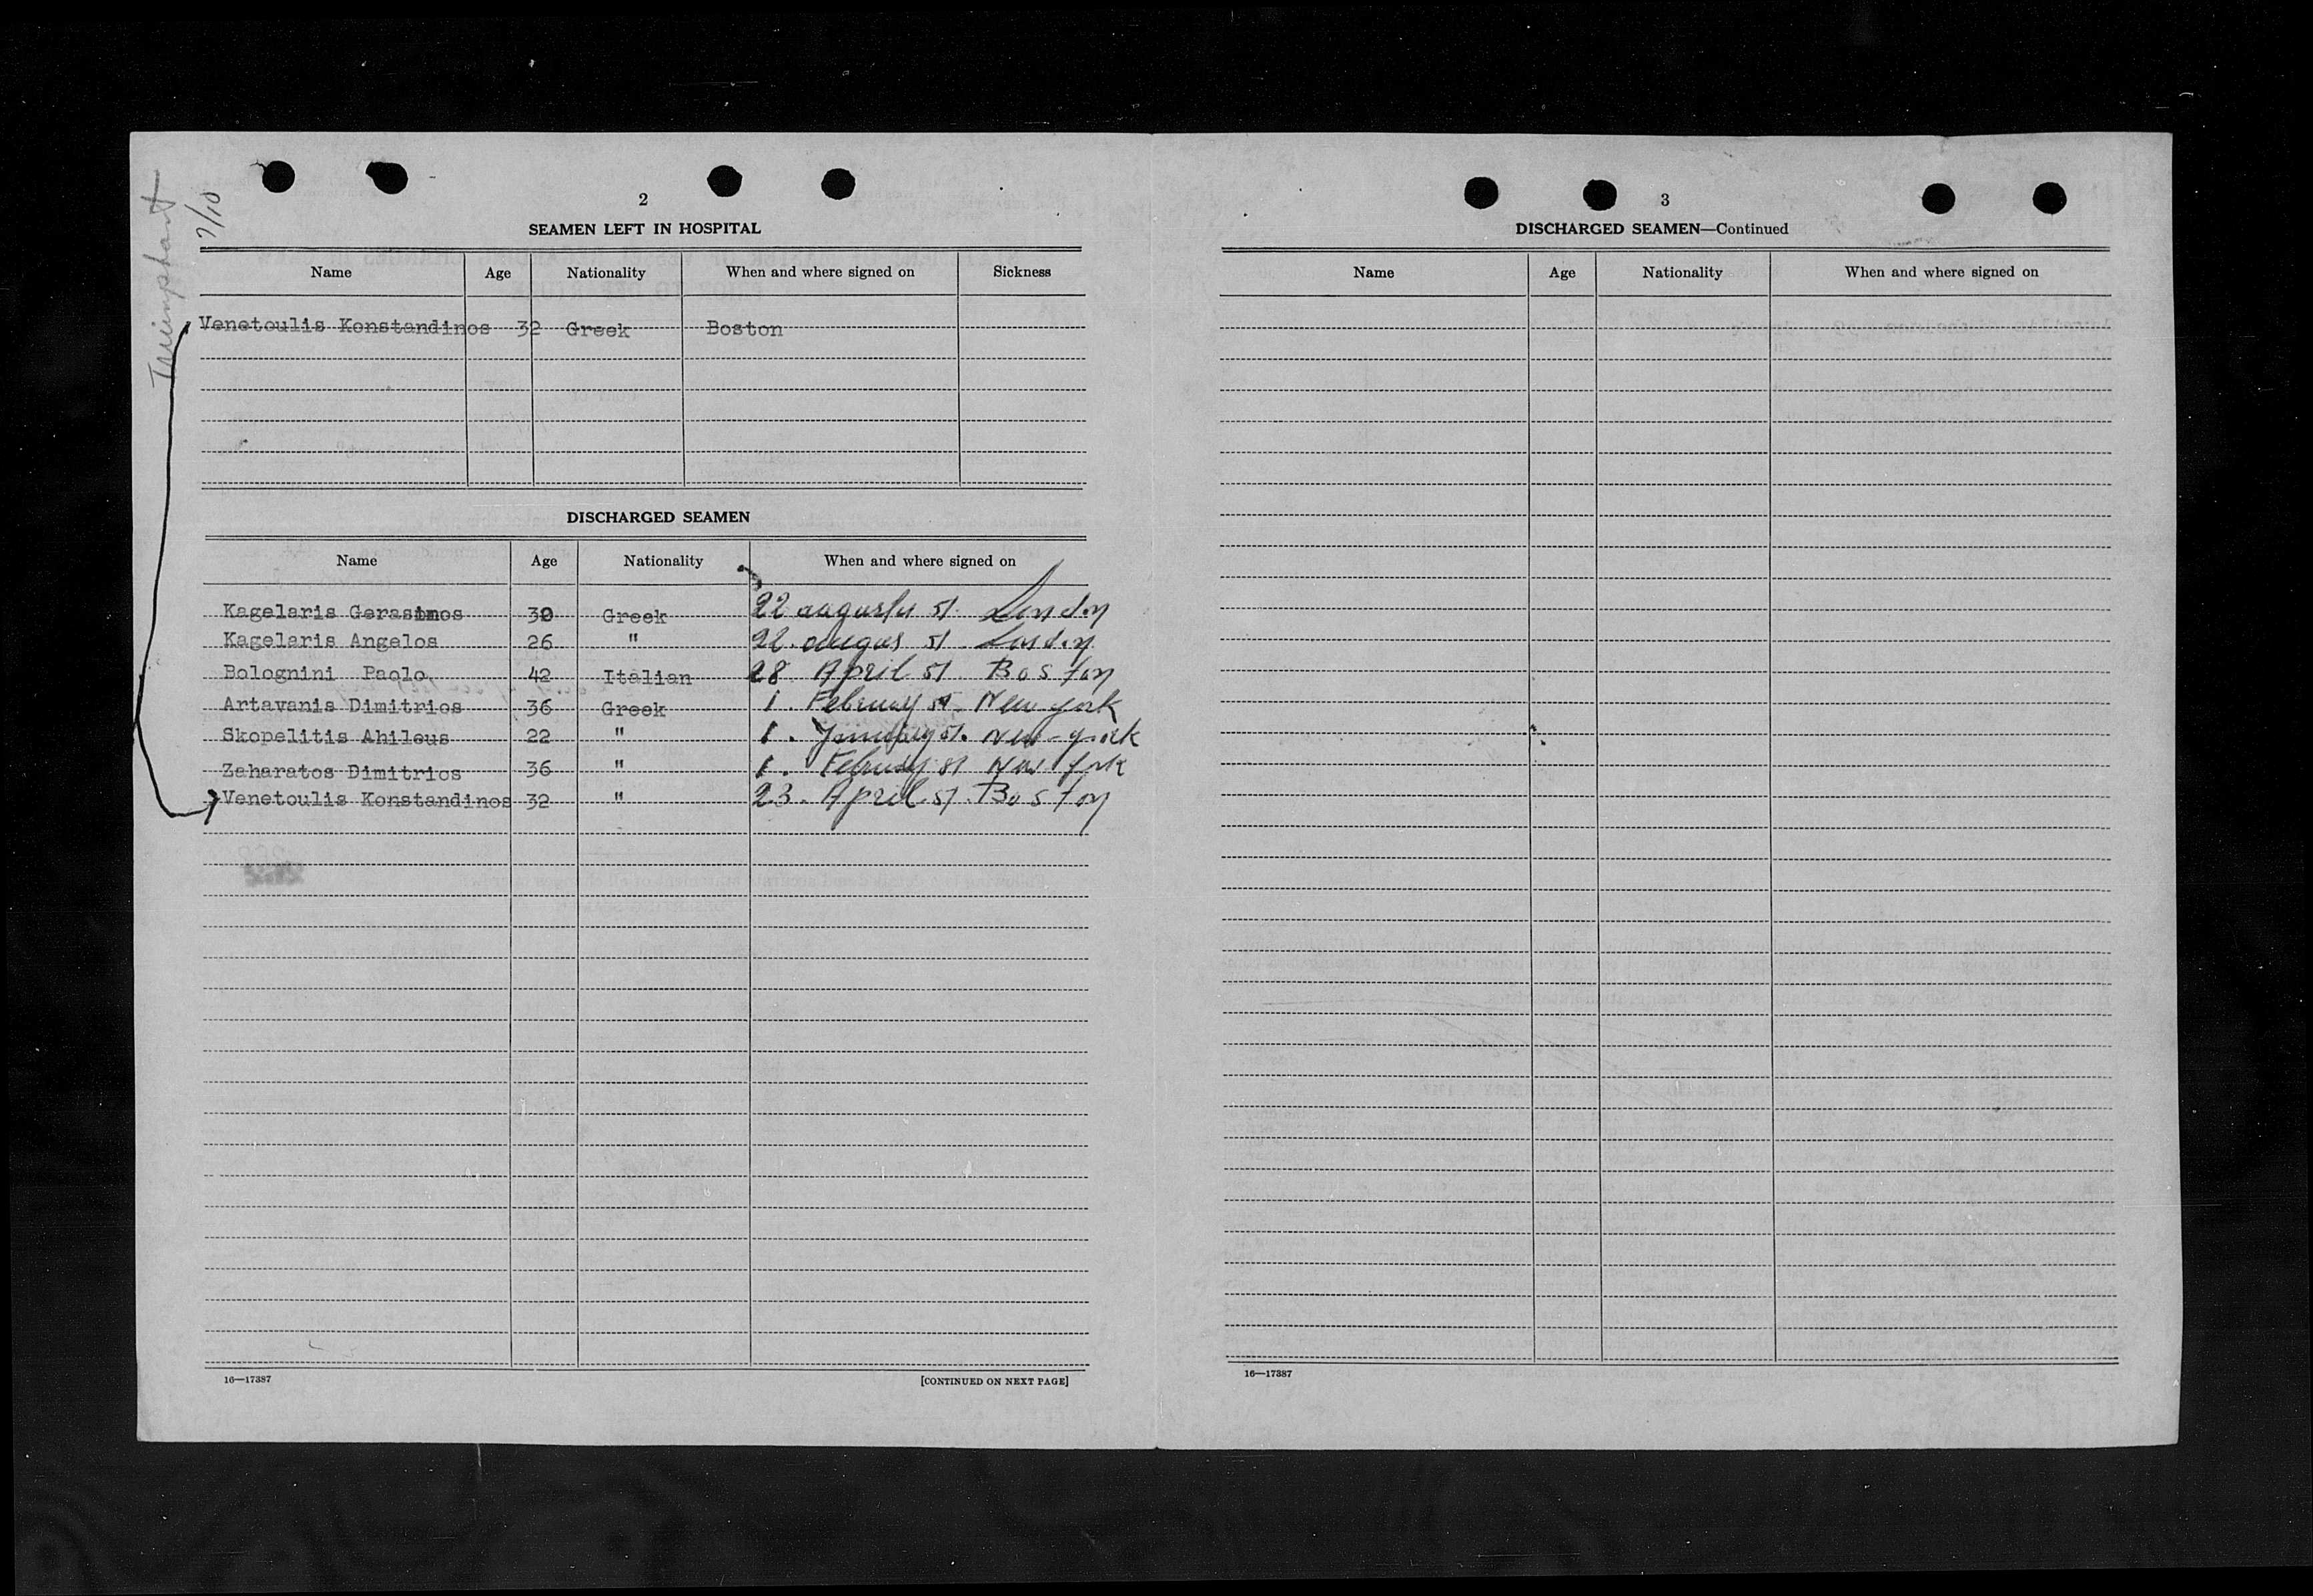 Triumphant
7/10
2
SEAMEN LEFT IN HOSPITAL
Name Age Nationality When and where signed on Sickness
Venetoulis Konstandinos 32 Greek Boston
DISCHARGED SEAMEN
Name Age Nationality When and where signed on
Kagelaris Gerasimos 30 Greek 22 augustu 51. London
Kagelaris Angelos 26 " 22. augus 51 London
Bolognini Paolo 42 Italian 28 April 51 Boston
Artavanis Dimitrios 36 Greek 1. February 51. New York
Skopelitis Ahileus 22 " 1. January 51. New-york
Zaharatos Dimitrios 36 " 1. February 51 New York
Venetoulis Konstandinos 32 " 23. April 51. Boston
16—17387 [CONTINUED ON NEXT PAGE]
3
DISCHARGED SEAMEN—Continued
Name Age Nationality When and where signed on
16—17387